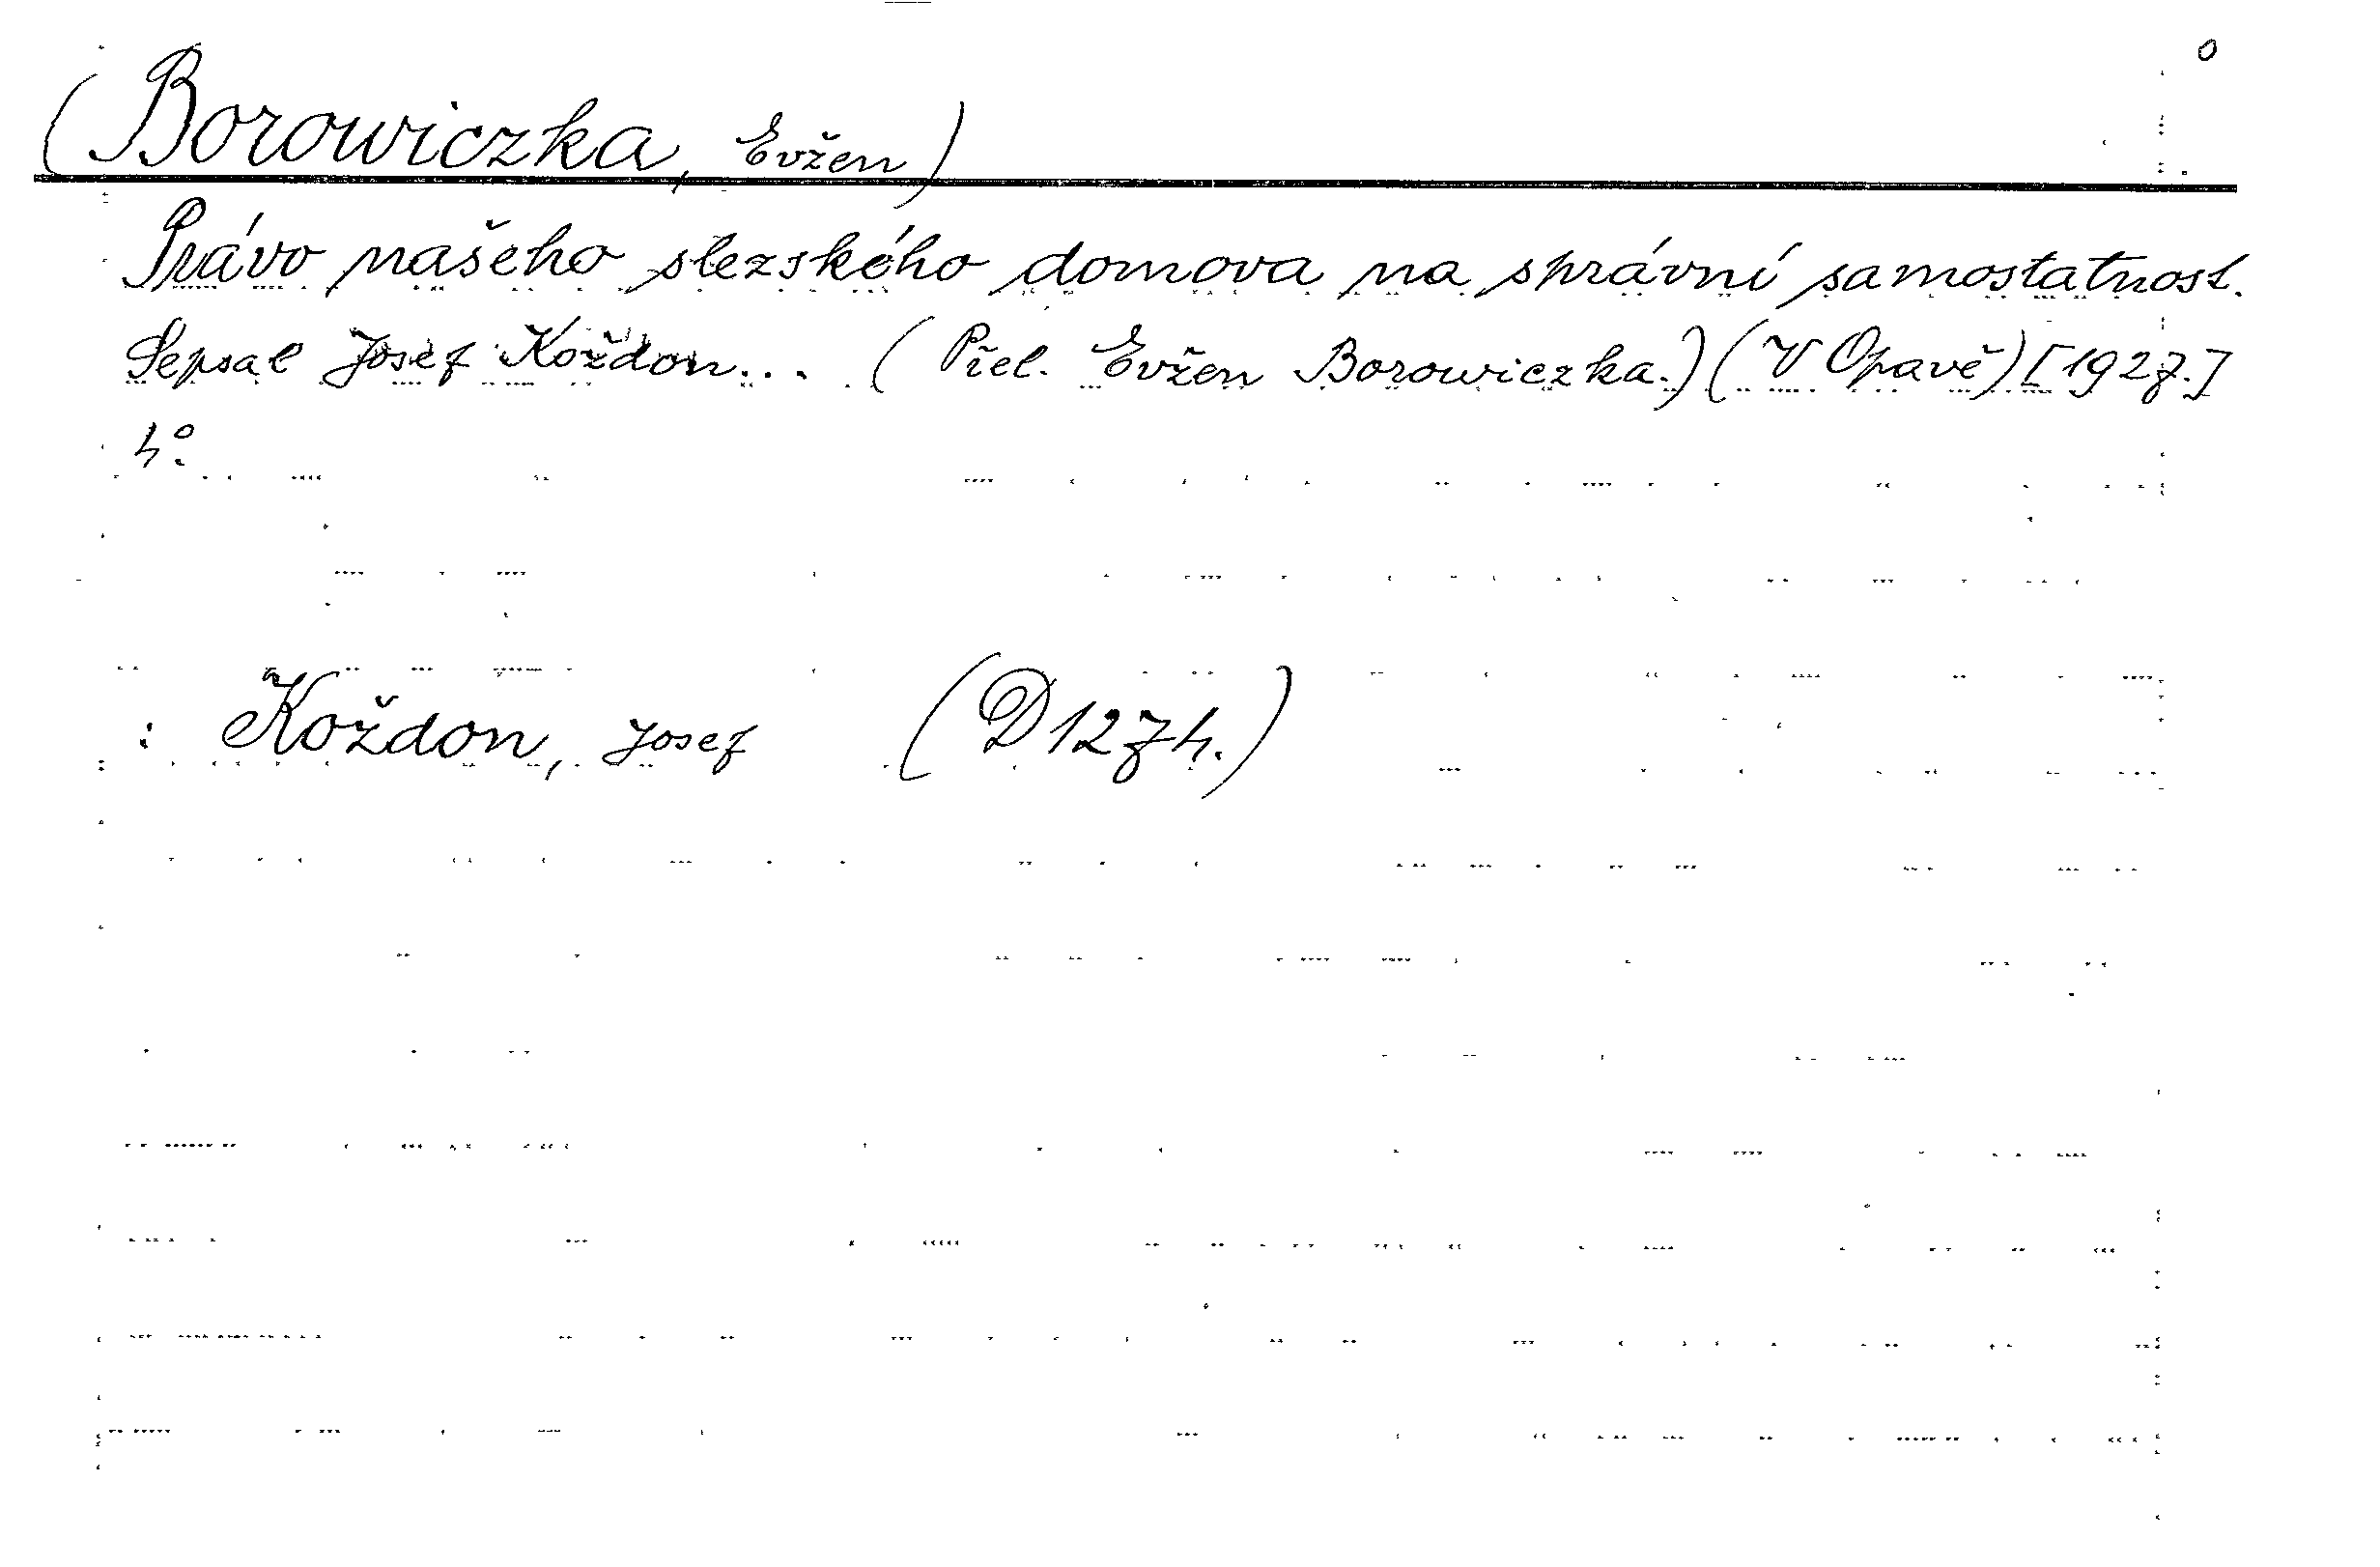 0
(Borowiczka, Evžen)
Právo našeho slezského domova na správní samostatnost.
Sepsal Josef Koždon... (Přel. Evžen Borowiczka.) (V Opavě) [1927.]
4°.
: Koždon, Josef (D 1274.)